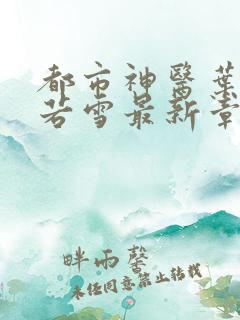 都市神醫葉
若雪最新章
畔雨馨
未经同意禁止转载